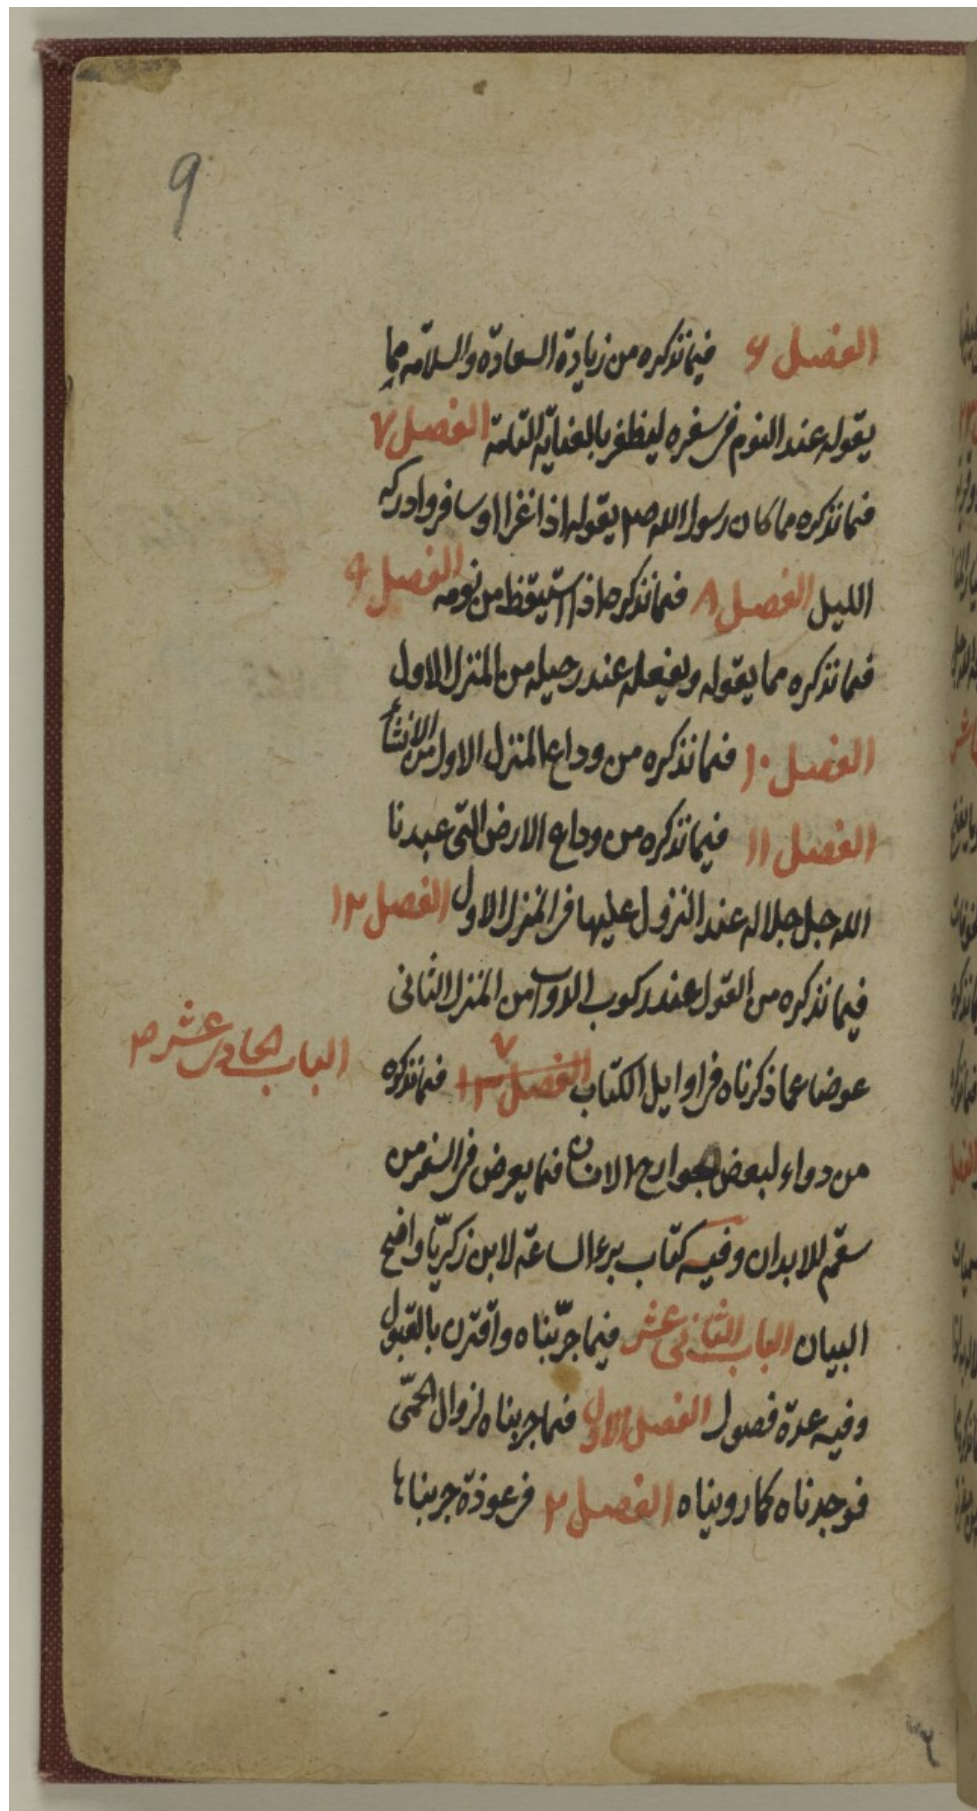 9
الفصل ۶ فيما نذكره من زيادة السعادة والسلامة مما
يقوله عند النوم فى سفره ليظفر بالعناية التامة الفصل ۷
فيما نذكره مما كان رسول الله ص يقوله اذا غزا او سافر وادركه
الليل الفصل ۸ فيما نذكره اذا استيقظ من نومه الفصل ۹
فيما نذكره مما يقوله ويفعله عند رحيله من المنزل الاول
الفصل ۱۰ فيما نذكره من وداع المنزل الاول من الانشاء
الفصل ۱۱ فيما نذكره من وداع الارض التى عبدنا
الله جل جلاله عند النزول عليها فى المنزل الاول الفصل ۱۲
فيما نذكره من القول عند ركوب الدواب من المنزل الثانى
الباب الحادى عشر ص
عوضا عما ذكرناه فى اوايل الكتاب الفصل ۱۳ فيما نذكره
من دواء لبعض جوارح الانسان فيما يعرض فى السفر من
سقم للابدان وفيه كتاب برء الساعة لابن زكريّا واضح
البيان الباب الثانى عشر فيما جرّبناه واقترن بالقبول
وفيه عدة فصول الفصل الاول فيما جربناه لزوال الحمّى
فوجدناه كما رويناه الفصل ۲ فى عوذة جربناها